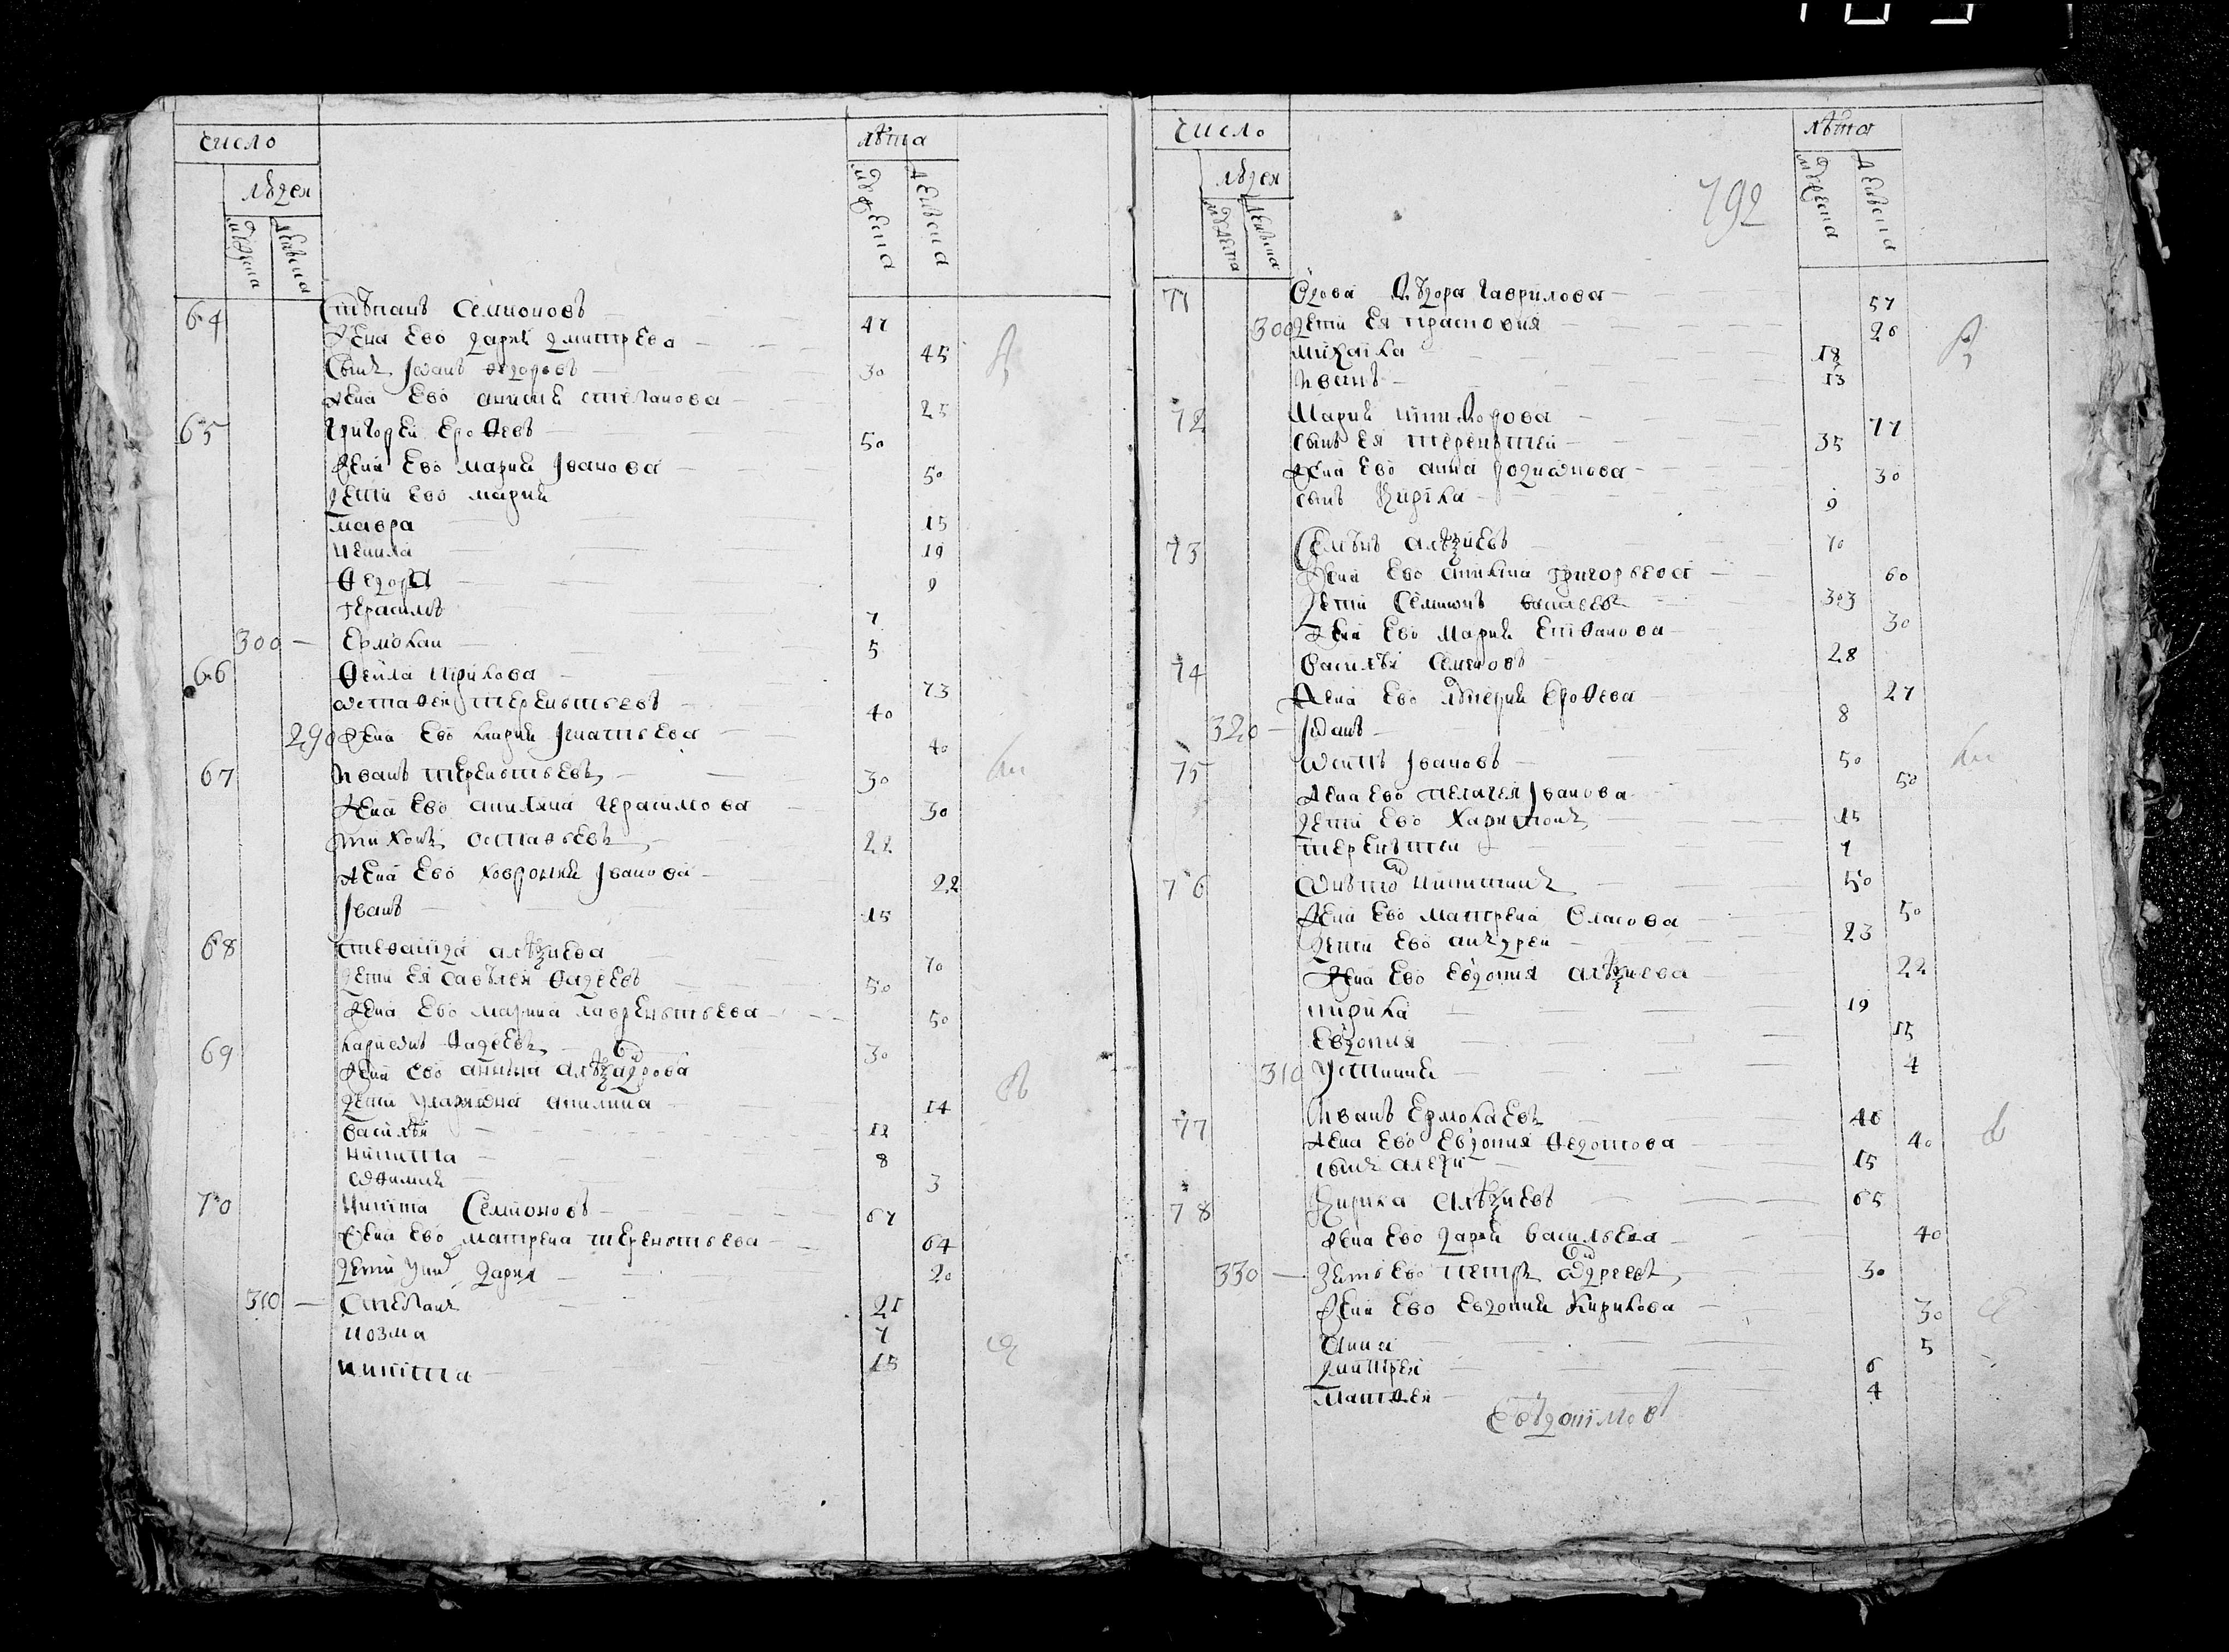 число
лѣта
людей
мужеска
женска
мужеска
женска
64 Стѣпанъ Семионовъ 47
жена ево дарьи дмитрева 45
Сынъ Јванъ Ѳедоровъ 30
жена ево аннсии степанова 25
65 Григорей ЕроѲеевъ 50
жена ево марии Јванова 50
дети ево марии
мавра 15
ненила 19
Ѳедора 9
Герасимъ 7
300 Ермолаи 5
66 Ѳекла Кирилова 73
ѡстаѲеи терентьевъ 40
290 жена ево марии Јгнатьева 40
67 Иванъ терентьевъ 30
жена ево акилина герасимова 30
тихонъ остаѳьевъ 22
жена ево ховрония Јванова 22
Јванъ 15
68 степанида алѣѯиева 70
дети ея савѣлеи Ѳадѣевъ 50
жена ево марина лаврентьева 50
69 Ларионъ Ѳадѣевъ 30
жена ево анна алеѯадрова
дети улияна акилина 14
василѣи 12
никита 8
ѡѲимия 3
70 Никита Семионовъ 67
жена ево матрена терентьева 64
дети у них дарья 20
310 Степанъ 21
козма 7
никита 15
число
лѣта
людей
мужеска
женска
мужеска
женска
792
71 Вдова Ѳедора Гаврилова 57
300 дети ея прасковия 20
михаила 18
Иванъ 13
72 Мария никиѲорова 77
сынъ ея терентеи 35
жена ево анна родионова 30
сынъ Кирила 9
73 Семѣнъ алѣѯиевъ 70
жена ево акилина григорьева 60
дети Семионъ василевъ 33
жена ево Марии ЕпиѲанова 30
74 Василѣи Семеновъ 28
жена ево лукерии ЕроѲеева 27
320 Јванъ 8
75 ѡсипъ Јвановъ 50
жена ево пелагея Јванова 50
дети ево Харитонъ 15
терентеи 7
76 никитинъ 50
жена ево матрена власова 50
дети ево андреи 23
жена ево евдокия алѣѯиева 22
кирила 19
Евдокия 15
310 Устинии 4
77 Иванъ Ермолаевъ 40
жена ево евдокия Ѳедотова 40
сынъ алеѯи 15
78 Кирила алѣѯиевъ 65
жена ево дарьи васильева 40
330 Зять ево петръ адреевъ 30
жена ево евдокии Кирилова 30
Анна 5
дмитреи 6
матѲеи 4
Евдокимовъ